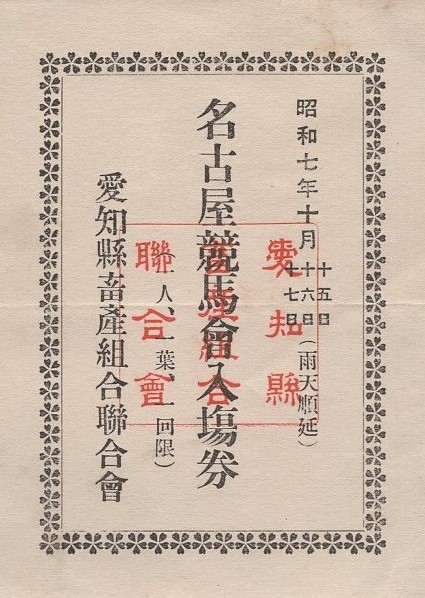 昭和七年十月
十五日
十六日
十七日
(雨天順延)
名古屋競馬會入塲券
(一人、一葉、一回限)
愛知縣畜產組合聯合會
愛知縣
畜產組合
聯合會